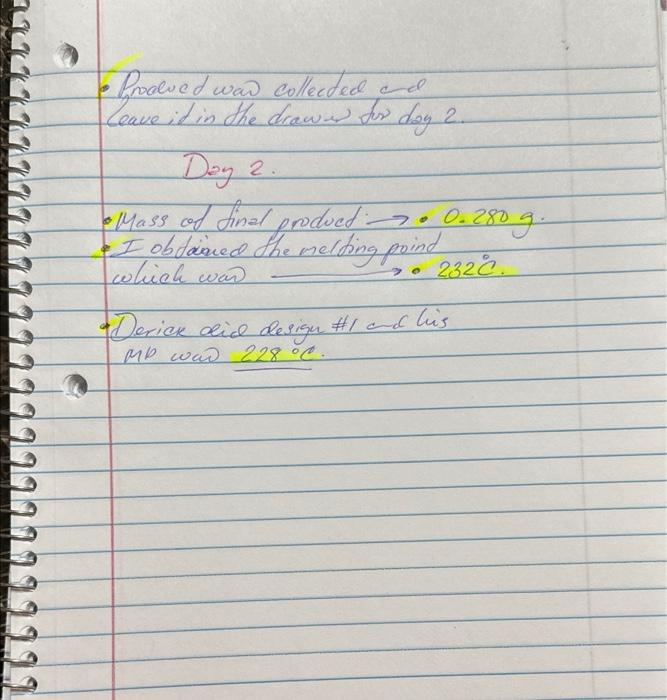 • Product was collected and
leave it in the drawer for day 2.
Day 2.
• Mass of final product: → • 0.280 g.
• I obtained the melting point
which was → • 232°C.
• Derick did design #1 and his
MP was 228 °C.